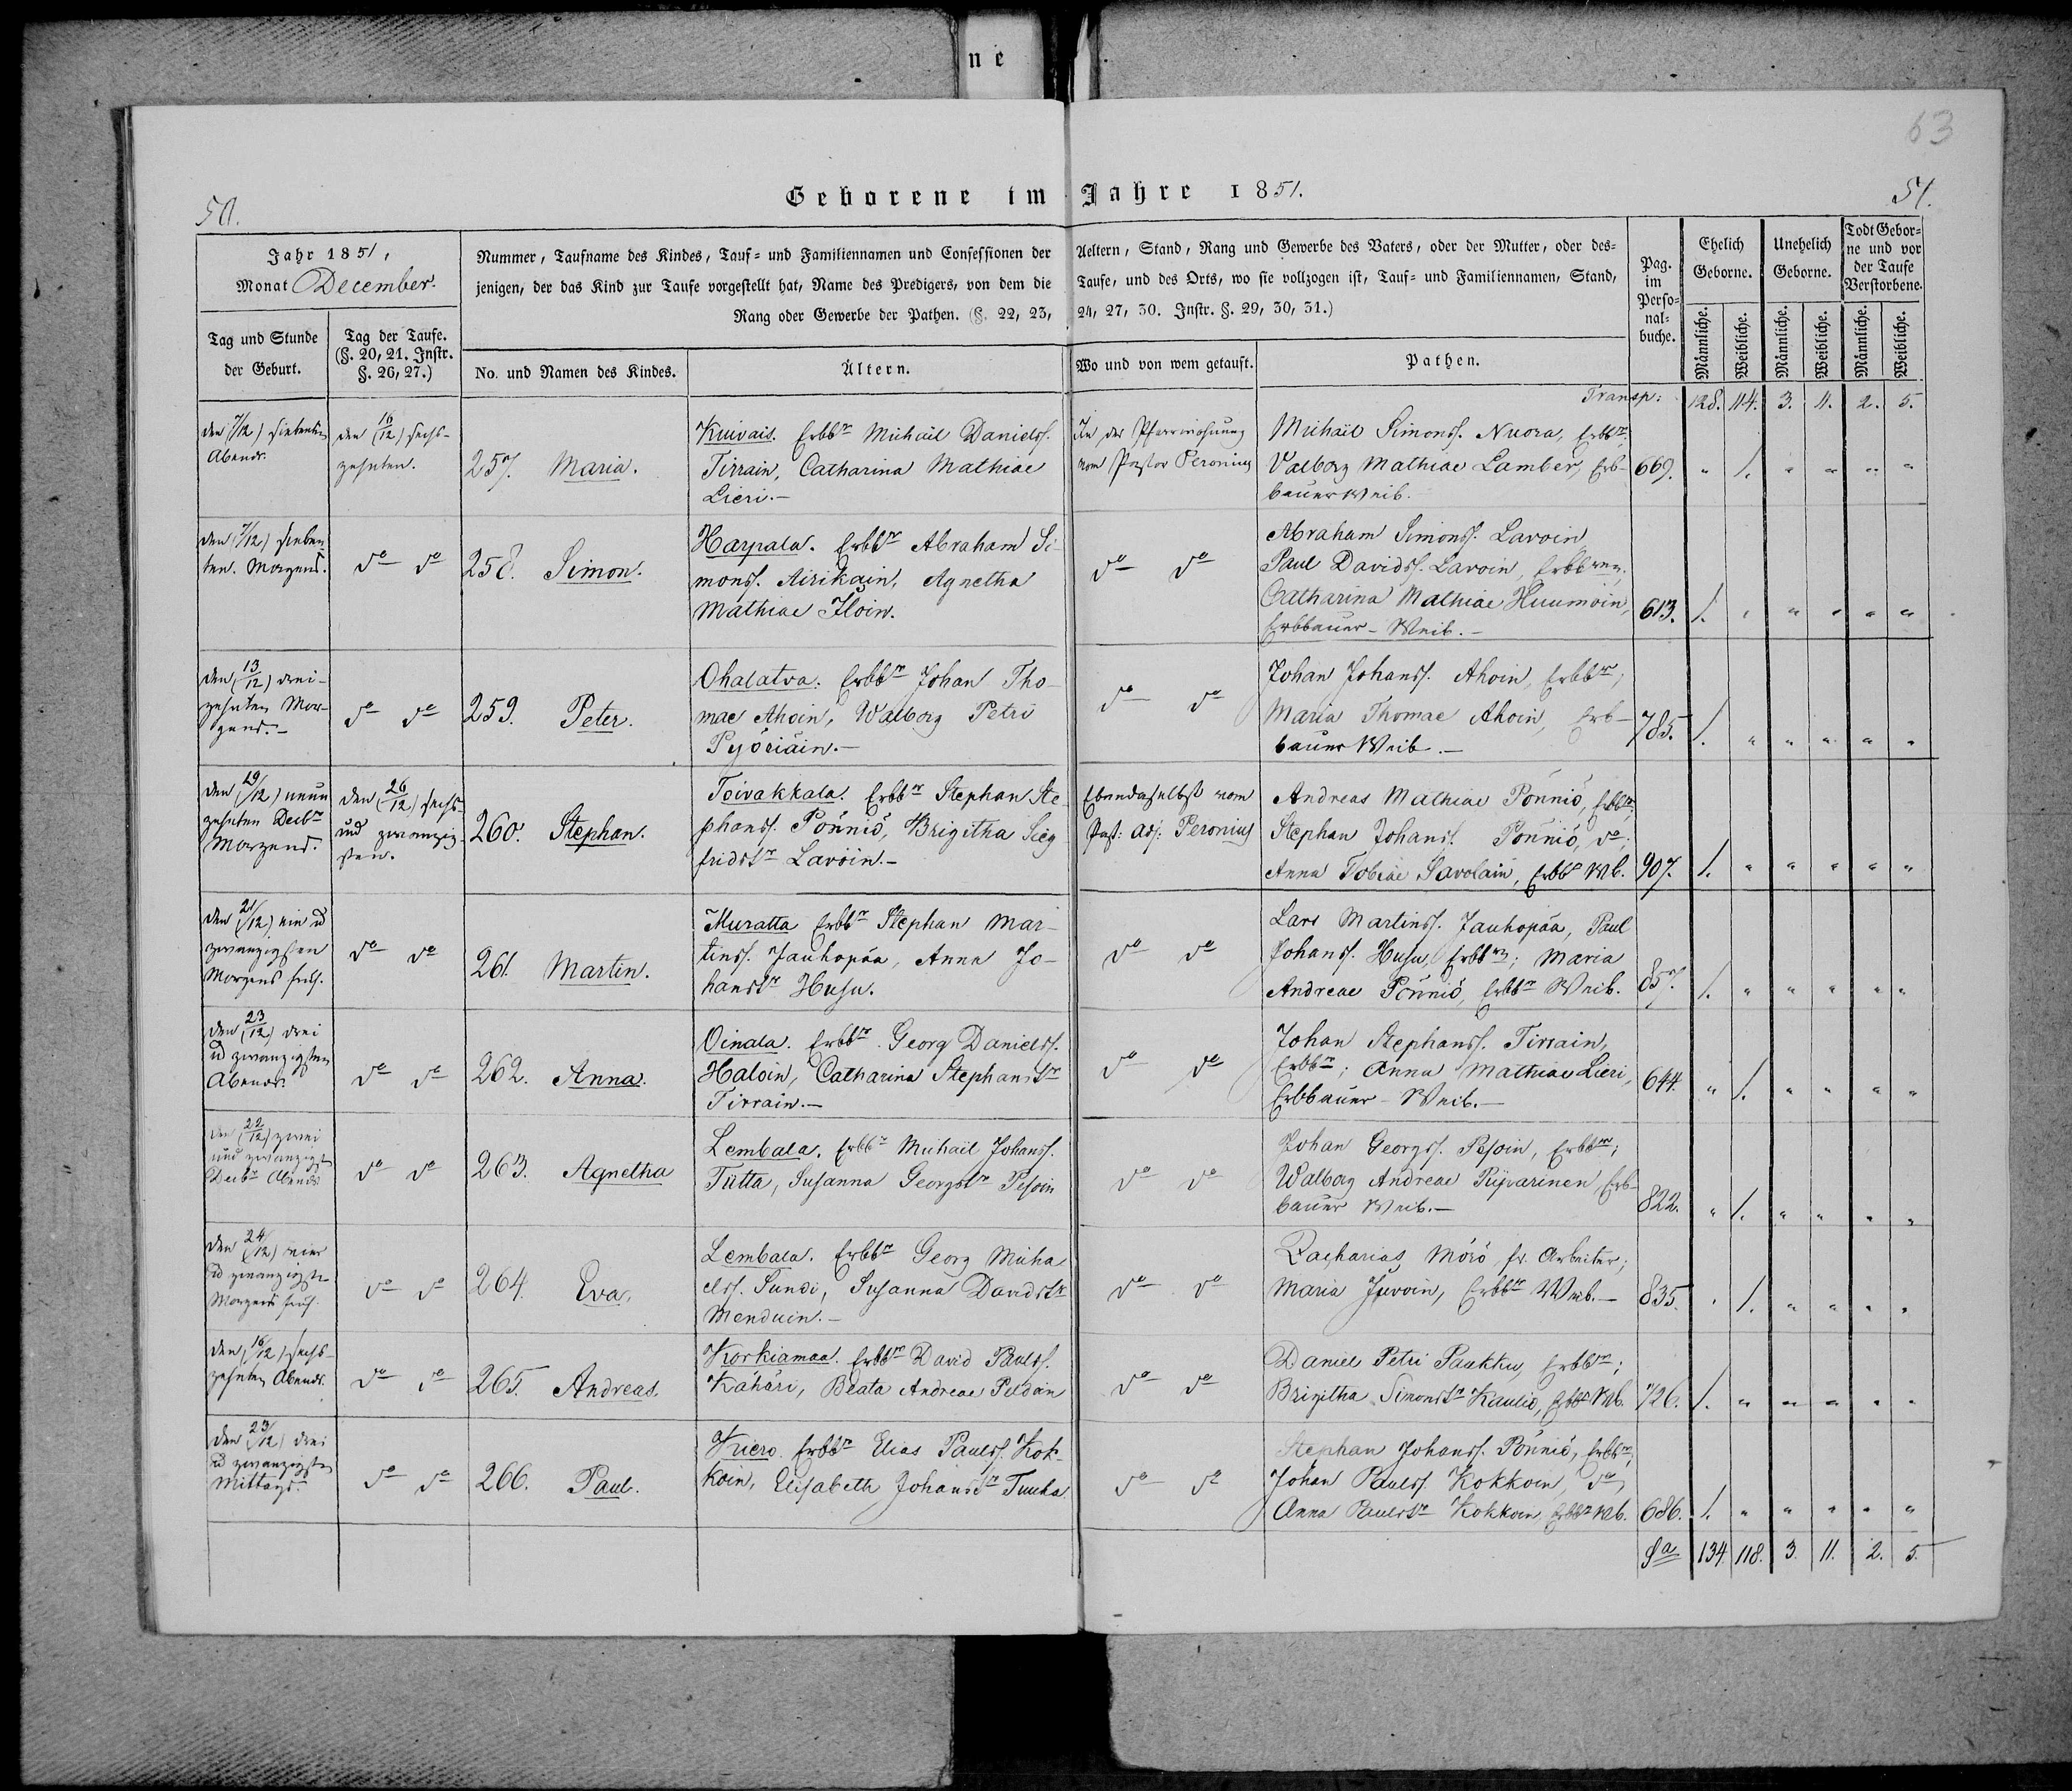 n e
63
50.
Geborene im Jahre 1851.
51.
Jahr 1851,
Monat December.
Nummer, Taufname des Kindes, Tauf- und Familiennamen und Confessionen der Aeltern, Stand, Rang und Gewerbe des Vaters, oder der Mutter, oder des-
jenigen, der das Kind zur Taufe vorgestellt hat, Name des Predigers, von dem die Taufe, und des Orts, wo sie vollzogen ist, Tauf- und Familiennamen, Stand,
Rang oder Gewerbe der Pathen. (§. 22, 23, 24, 27, 30. Instr. §. 29, 30, 31.)
Pag.
im
Perso-
nal-
buche.
Ehelich
Geborne.
Unehelich
Geborne.
Todt Gebor-
ne und vor
der Taufe
Verstorbene.
Männliche. Weibliche. Männliche. Weibliche. Männliche. Weibliche.
Tag und Stunde
der Geburt.
Tag der Taufe.
(§. 20, 21. Instr.
§. 26, 27.)
No. und Namen des Kindes.
Ältern.
Wo und von wem getauft.
Pathen.
Transp: 128. 114. 3. 11. 2. 5.
den (7/12) siebenten
Abends.
den (16/12) sechs-
zehnten.
257. Maria.
Kuivais. Erbbr Michaïl Danielss.
Tirrain, Catharina Mathiae
Lieri.-
In der Pfarrwohnung
vom Pastor Peronius
Michaïl Simonss. Nuora, Erbbr.
Valborg Mathiae Lamber, Erb-
bauer Weib.
669. " 1. " " " "
den (7/12) sieben
ten. Morgens.
do do
258. Simon.
Harpala. Erbbr Abraham Si-
monss. Airikain, Agnetha
Mathiae Iloin.
do do
Abraham Simonss. Lavoin
Paul Davidss. Lavoin,
Catharina Mathiae Huumoin,
Erbbauer-Weib.-
613. 1. " " " " "
den (13/12) drei-
zehnten Mor-
gens.-
do do
259. Peter.
Ohalatva. Erbbr Johan Tho-
mae Ahoin, Walborg Petri
Pyöriäin.-
do do
Johan Johanss. Ahoin, Erbbr;
Maria Thomae Ahoin, Erb-
bauer Weib.-
785. 1. " " " " "
den (19/12) neun
zehnten Decbr
Morgens.
den (26/12) sechs
und zwanzig-
sten.
260. Stephan.
Toivakkala. Erbbr Stephan Ste-
phanss. Pönniö, Brigitha Sieg
fridstr Lavöin.-
Ebendaselbst vom
Past: Adj: Peronius
Andreas Mathiae Pönniö, Erbbr,
Stephan Johanss. Pönniö, do;
Anna Tobiae Savolain, Erbbr Wb.
907. 1. " " " " "
den (21/12) ein u
zwanzigsten
Morgens früh.
do do
261. Martin.
Muratta Erbbr Stephan Mar-
tinss. Jauhopää, Anna Jo-
hanstr Husu.
do do
Lars Martinss. Jauhopää, Paul
Johanss. Husu, Erbbr; Maria
Andreae Pönniö, Erbbr Weib.
857. 1. " " " " "
den (23/12) drei
u zwanzigsten
Abends.
do do
262. Anna.
Oinala. Erbbr. Georg Danielss.
Haloin, Catharina Stephanstr
Tirrain.-
do do
Johan Stephanss. Tirrain,
Erbbr; Anna Mathiae Lieri,
Erbbauer-Weib.-
644. " 1. " " " "
den (22/12) zwei
und zwanzigst
Decbr Abends
do do
263. Agnetha
Lembala. Erbbr Michaïl Johanss.
Tütta, Susanna Georgstr Pesoin
do do
Johan Georgss. Pesoin, Erbbr;
Walborg Andreae Püjvarinen, Erb-
bauer Weib.-
822. " 1. " " " "
den (24/12) vier
u zwanzigste
Morgens früh.
do do
264. Eva.
Lembala. Erbbr Georg Micha
elss. Sundi, Susanna Davidstr
Menduin.-
do do
Zacharias Mörö fr. Arbeiter;
Maria Juvoin, Erbbr Weib.-
835. " 1. " " " "
den (16/12) sechs-
zehnten Abends.
do do
265. Andreas.
Korkiamaa. Erbbr David Paulss.
Kähäri, Beata Andreae Peldain
do do
Daniel Petri Paukku, Erbbr;
Brigitha Simonstr Kauliö, Erbbr Wb.
726. 1. " " " " "
den (23/12) drei
u zwanzigsten
Mittags.
do do
266. Paul.
Kiero. Erbbr Elias Paulss. Kok-
koin, Elisabeth Johanstr Tuuha.
do do
Stephan Johanss. Pönniö, Erbbr;
Johan Paulss. Kokkoin, do,
Anna Paulstr Kokkoin, Erbbr Wb.
686. 1. " " " " "
Sa 134. 118. 3. 11. 2. 5.